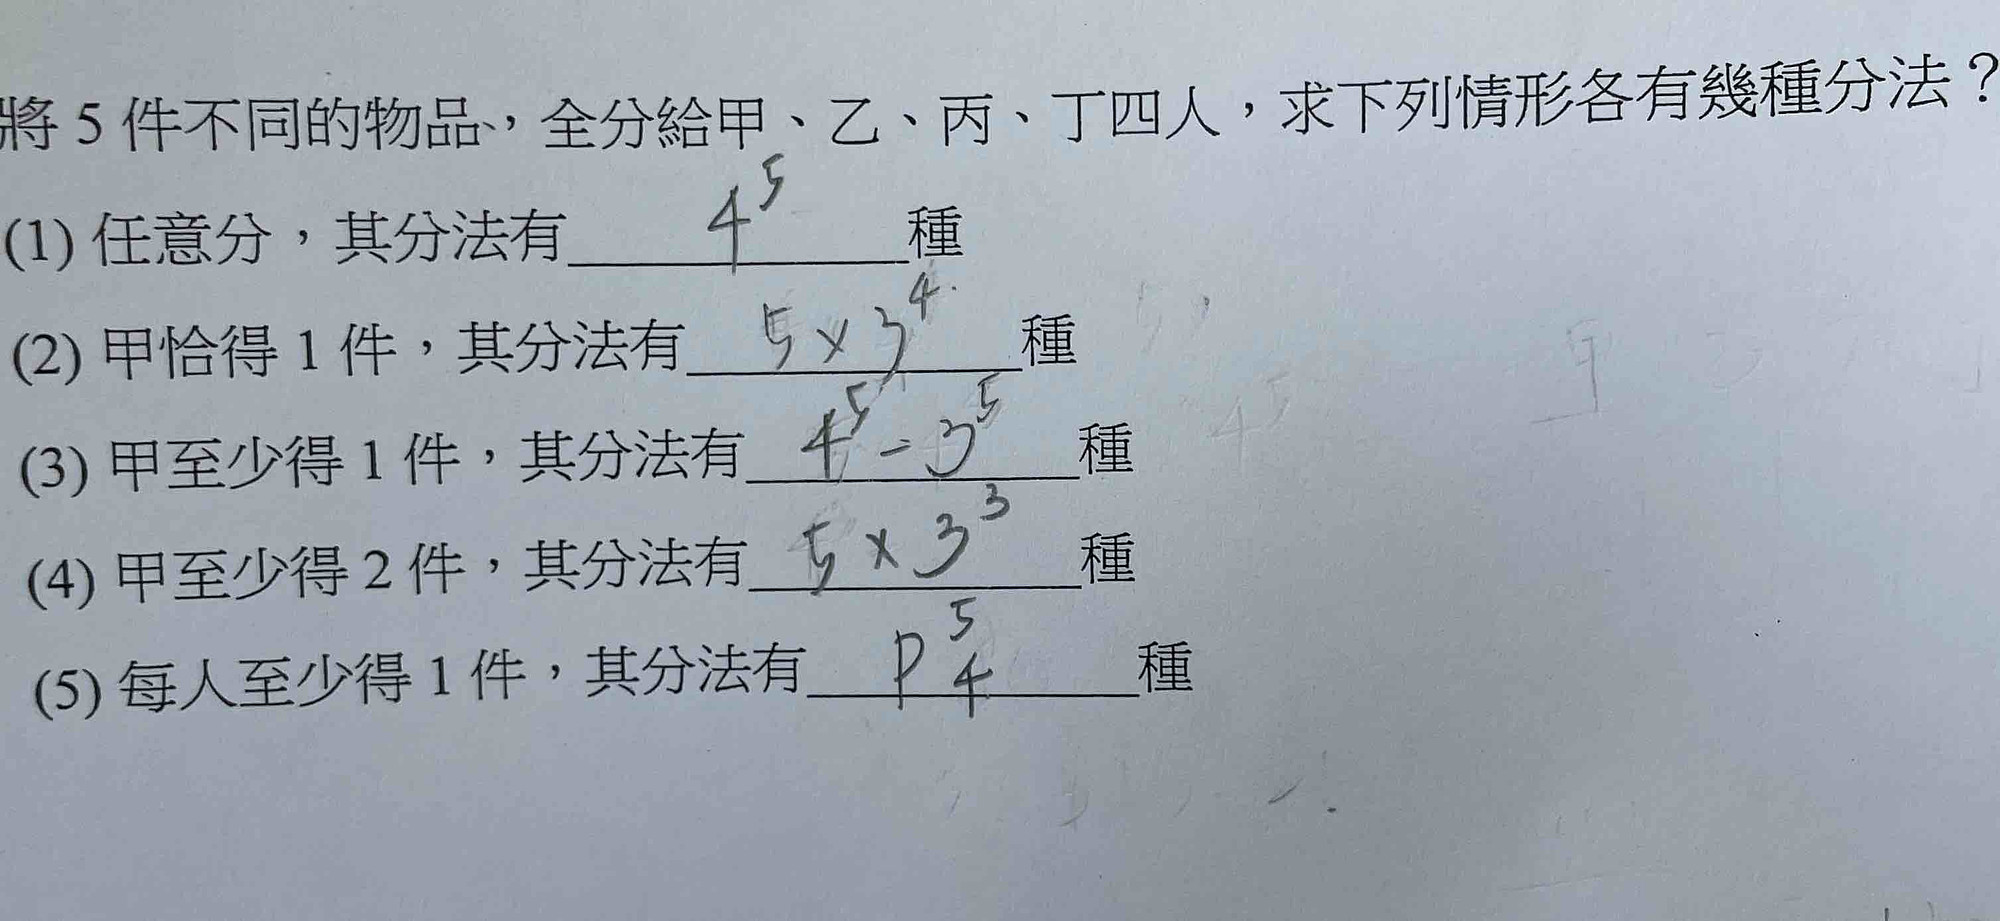 將 5 件不同的物品、，全分給甲、乙、丙、丁四人，求下列情形各有幾種分法？
(1) 任意分，其分法有 4⁵ 種
(2) 甲恰得 1 件，其分法有 5×3⁴ 種
(3) 甲至少得 1 件，其分法有 4⁵-3⁵ 種
(4) 甲至少得 2 件，其分法有 5×3³ 種
(5) 每人至少得 1 件，其分法有 P⁵₄ 種